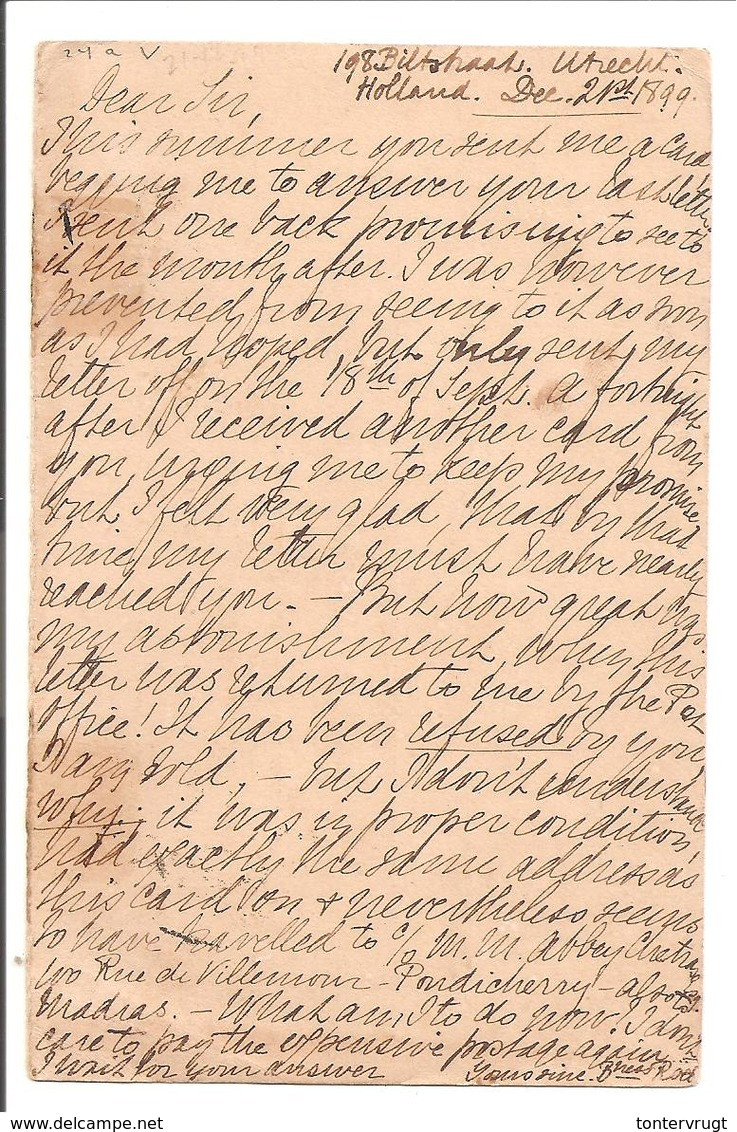 24 a V
198 Biltstraat. Utrecht.
Holland. Dec. 21st 1899.
Dear Sir,
This summer you sent me a card
begging me to answer your last letter.
I sent one back promising to see to
it the month after. I was however
prevented from seeing to it as soon
as I had hoped, but only sent my
letter off on the 18th of Sept. A fortnight
after I received another card from
you urging me to keep my promise
but I felt very glad that by that
time my letter must have nearly
reached you. — But how great was
my astonishment, when this
letter was returned to me by the Post
office! It has been refused by you
I am told, — but I don't understand
why; it was in proper condition,
had exactly the same address as
this card on & nevertheless seems
to have travelled to c/o M. M. Abbey
100 Rue de Villemour — Pondicherry — also to
Madras. — What am I to do now? I don't
care to pay the expensive postage again
I wait for your answer Yours sinc. Bness
tontervrugt